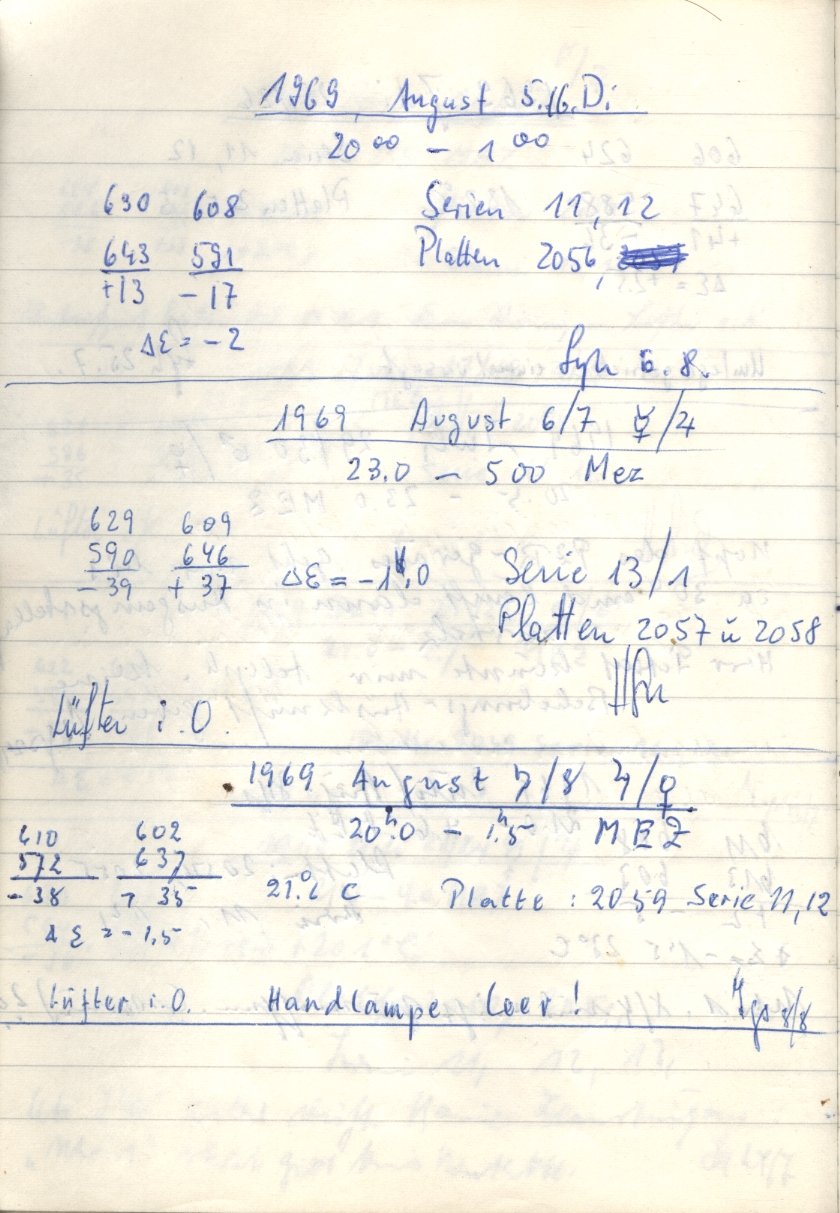 1969 August 5./6. Di
20 00 – 1 00
630 608 Serien 11, 12
643 591 Platten 2056,
+13 – 17
Δε = – 2
6. 8.
1969 August 6/7 ☿/♃
23.0 – 5 00 Mez
629 609
590 646 Δε = –1.0 Serie 13/1
– 39 + 37 Platten 2057 ü 2058
Lüfter i. O.
1969 August 7/8 ♃/♀
20h.0 – 1h.5 MEZ
610 602
572 637
– 38 + 35 21.°6 C Platte : 2059 Serie 11, 12
Δ ε = – 1.5
Lüfter i. O. Handlampe leer! 8/8